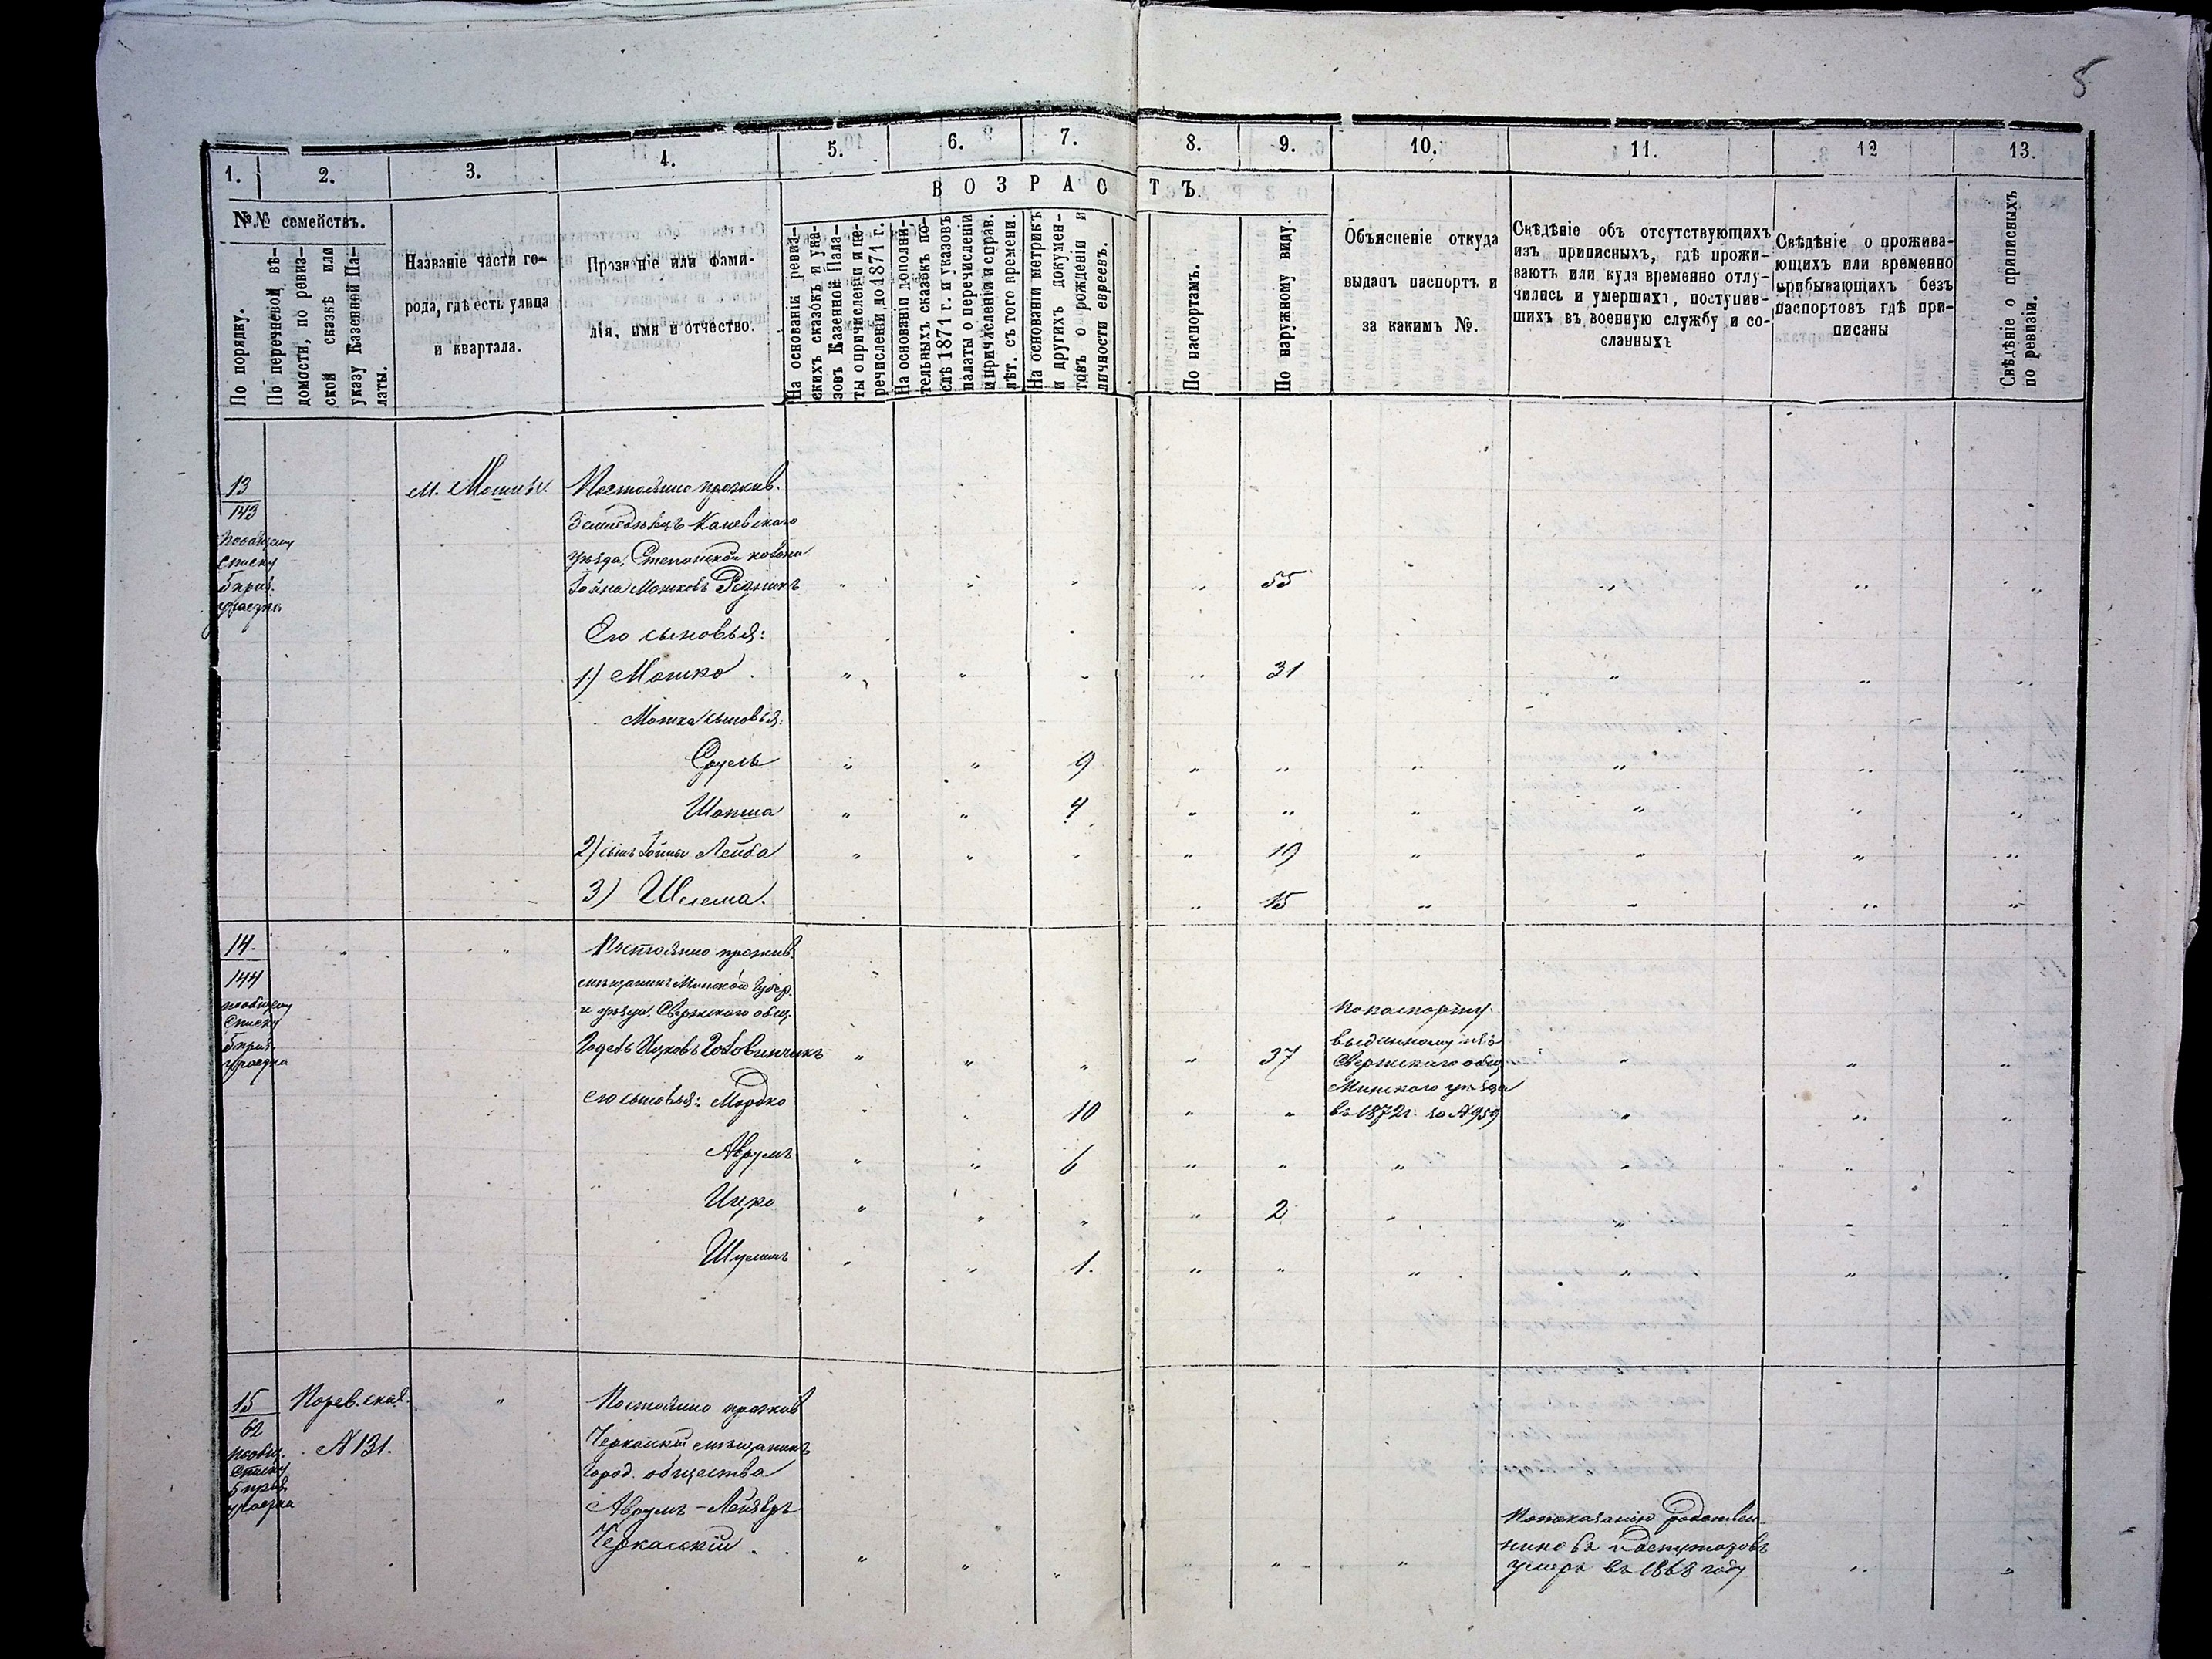 5
1. 2. 3. 4. 5. 6. 7. 8. 9. 10. 11. 12 13.
В О З Р А С Т Ъ.
№№ семействъ.
По порядку.
По перечневой вѣ-
домости, по ревиз-
ской сказкѣ или
указу Казенной Па-
латы.
Названіе части го-
рода, гдѣ есть улица
и квартала.
Прозваніе или фами-
лія, имя и отчество.
На основаніи ревиз-
скихъ сказокъ и ука-
зовъ Казенной Пала-
ты о причисленіи и пе-
речисленіи до 1871 г.
На основаніи дополни-
тельныхъ сказокъ по-
слѣ 1871 г. и указовъ
палаты о перечисленіи
и причисленіи и справ.
лѣт. съ того времени.
На основаніи метрикъ
и другихъ докумен-
товъ о рожденіи и
личности евреевъ.
По паспортамъ.
По наружному виду.
Объясненіе откуда
выданъ паспортъ и
за какимъ №.
Свѣдѣніе объ отсутствующихъ
изъ приписныхъ, гдѣ прожи-
ваютъ или куда временно отлу-
чились и умершихъ, поступив-
шихъ въ военную службу и со-
сланныхъ
Свѣдѣніе о прожива-
ющихъ или временно
прибывающихъ безъ
паспортовъ гдѣ при-
писаны
Свѣдѣніе о приписныхъ
по ревизіи.
13
143
по общему
списку
5 приз.
участка
м. Мошны
Постоянно прожив.
Земледѣлецъ Каневскаго
уѣзда, Степанской колоніи
Іойна Мошковъ Резникъ " " " " 55 " " "
Его сыновья:
1) Мошко " " " " 31 " " "
Мошка сыновья:
Сруль " " 9 " " " " " "
Шопша " " 4 " " " " " "
2) сынъ Іойны Лейба " " " " 19 " " " "
3) Шлема. " 15 " " " "
14.
144
по общему
списку
5 приз.
участка
" "
Постоянно прожив.
мѣщанинъ Минской губер.
и уѣзда, Свержскаго общ.
Годель Ицковъ Головинчикъ " " " " 37 " " "
По паспорту
выданному изъ
Свержскаго общ.
Минскаго уѣзда
въ 1872 г. за № 959
его сыновья: Мордко " 10 " " " " "
Аврумъ " " 6 " " " " " "
Ицко " " " " 2 " " " "
Шулимъ " " 1. " " " " " "
15
62
по общ.
списку
5 приз.
участка
№ 131.
"
Постоянно прожив
Черкаскій мѣщанинъ
город. общества
Аврумъ-Лейзеръ
Черкаскій. " " " " " " "
По показанію родствен-
никовъ и депутатовъ
умеръ въ 1868 году